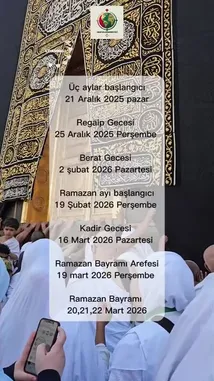 Üç aylar başlangıcı
21 Aralık 2025 pazar
Regaip Gecesi
25 Aralık 2025 Perşembe
Berat Gecesi
2 şubat 2026 Pazartesi
Ramazan ayı başlangıcı
19 Şubat 2026 Perşembe
Kadir Gecesi
16 Mart 2026 Pazartesi
Ramazan Bayramı Arefesi
19 mart 2026 Perşembe
Ramazan Bayramı
20,21,22 Mart 2026